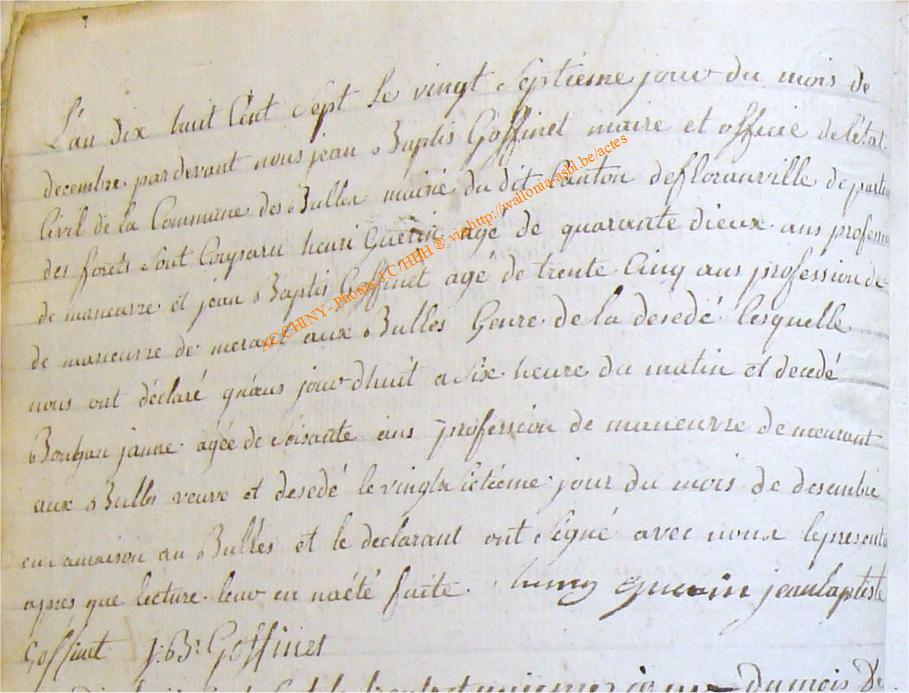 L'an dix huit Cent Sept Le vingt Septieme jour du mois de
decembre par devant nous jean Baptis Goffinet maire et officie de l'Etat
Civil de la Commune des Bulles mairie du dit Canton de floranville departe
des forets Sont Comparu henri Guerin agé de quarante dieux ans profession
de maneuvre et jean Baptis Goffinet age de trente Cinq ans profession de
de maneuvre de merant aux Bulles Genre de la desedé lesquelle
nous ont déclaré jour dhuit a Six heure du matin et decedé
janne agée de Soisante ans profession de maneuvre de meurant
aux Bulles veuve et desedé le jour du mois de desembre
en Bulles et le declarant ontSégné avec nous le presente
apres que lecture leur en naété faite. guerin jean baptiste
Goffint J:B: Goffinet
du mois de
AC CHINY - Photos TC/HBH ® via http://wallonia-asbl.be/actes